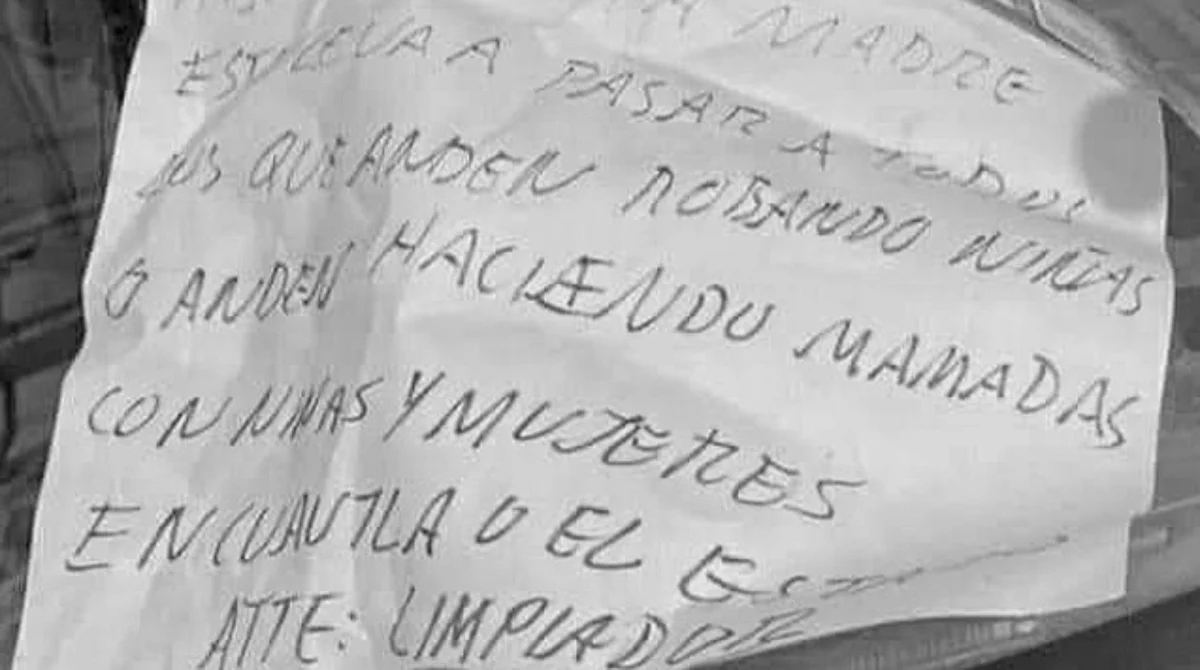 MADRE
ESTO LE VA A PASAR A TODOS
LOS QUE ANDEN ROBANDO NIÑAS
O ANDEN HACIENDO MAMADAS
CON NIÑAS Y MUJERES
EN CUAUTLA O EL
ATTE: LIMPIADOR